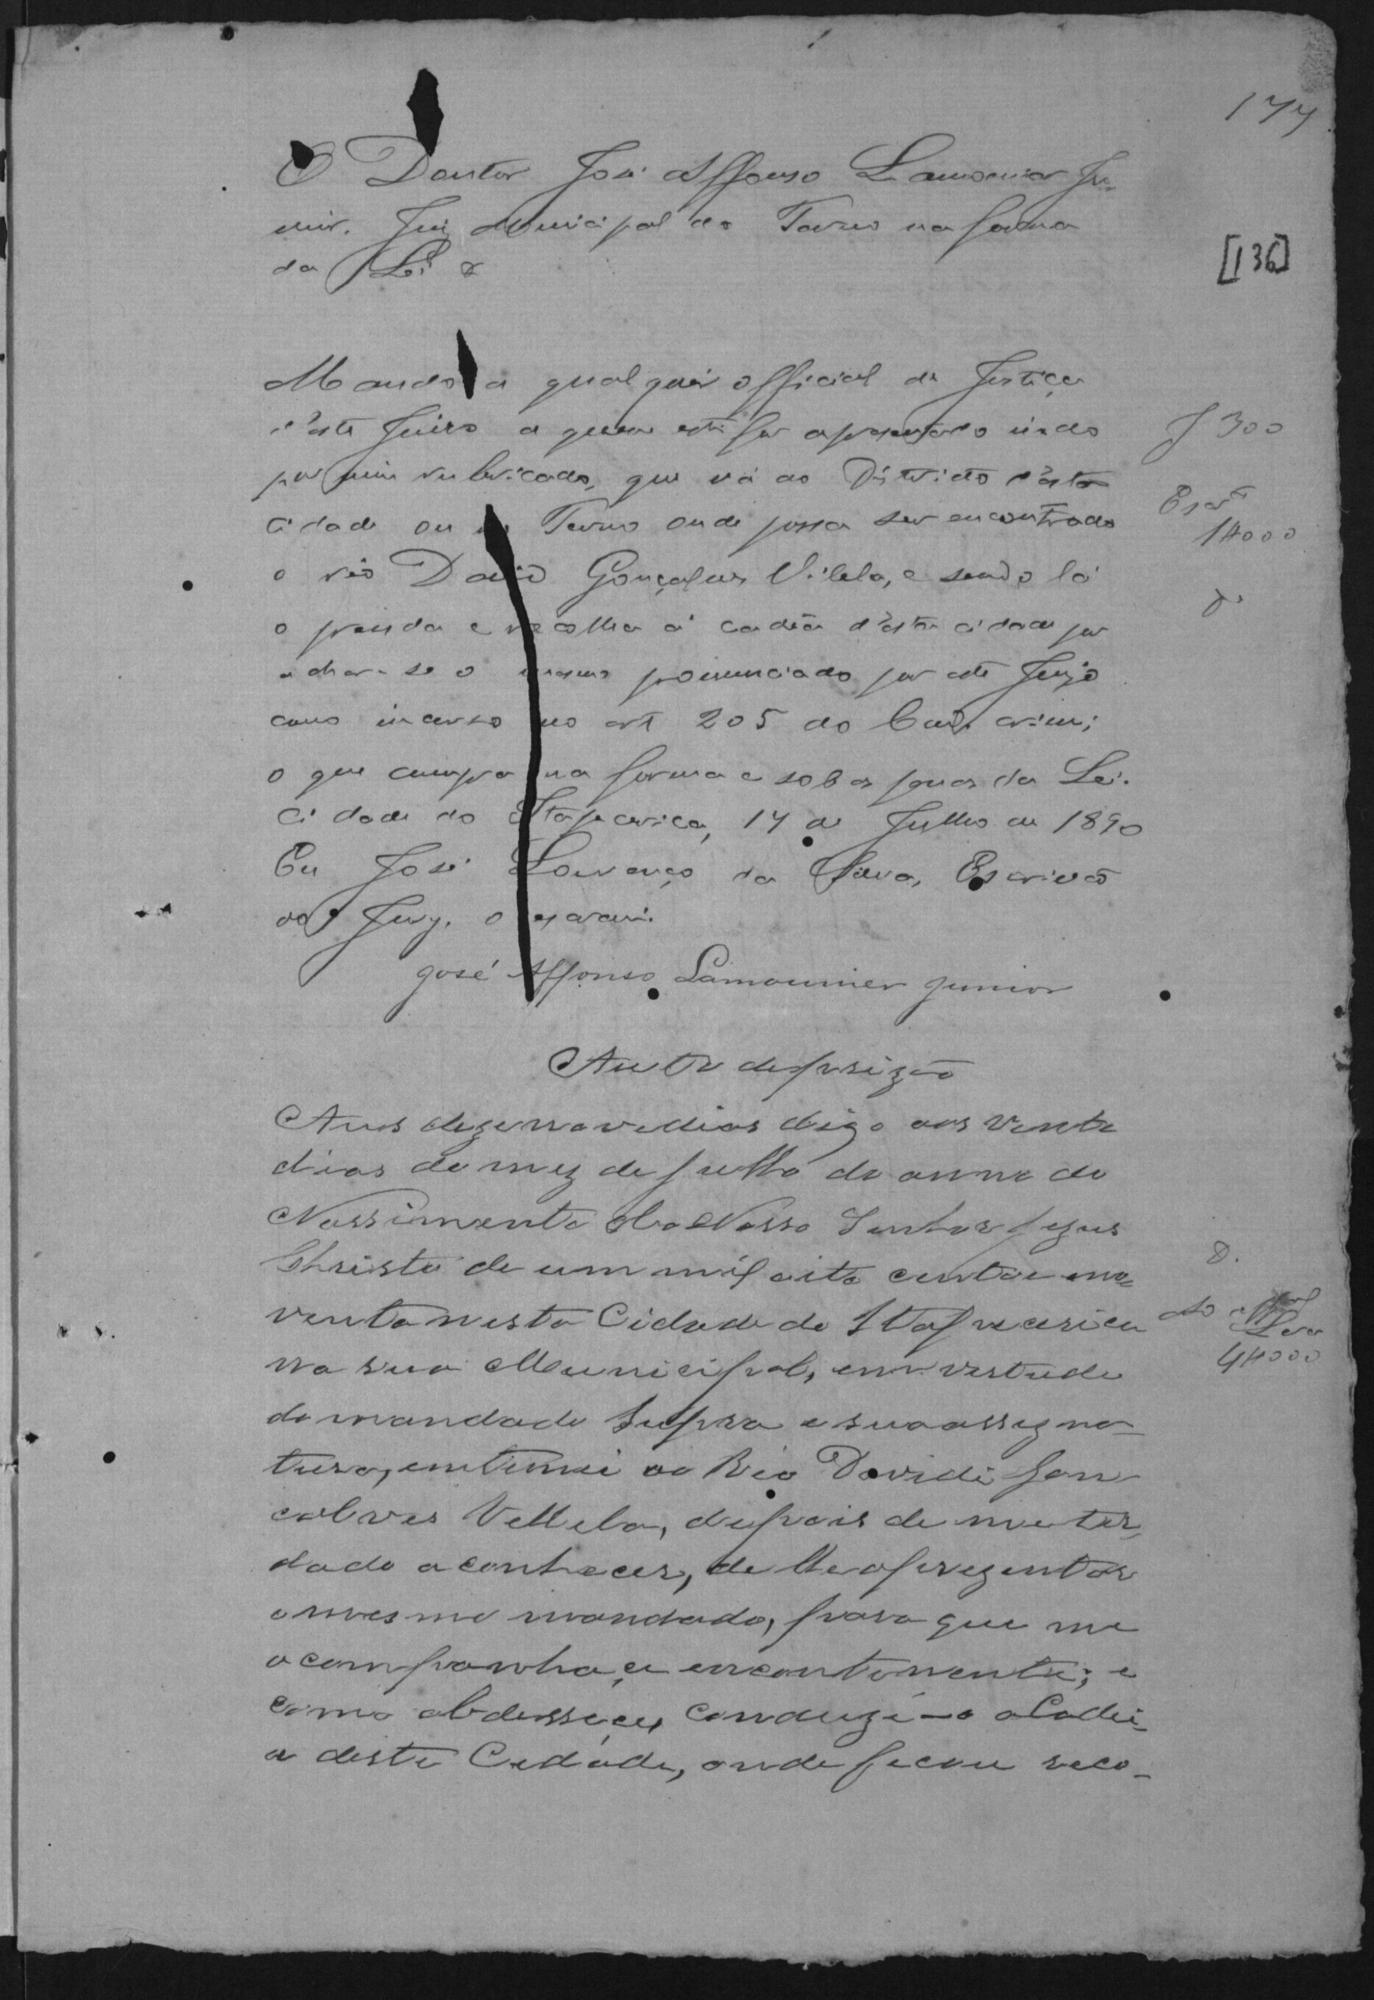 177
O Doutor José Affonso Lamounier Ju-
nior, Juiz Municipal do Termo na forma
da Lei &
[136]
Mando a qualquer official de Justiça
d'este Juizo a quem este for apresentado indo
por mim rubricado, que vá ao Districto d'esta
cidade ou Termo onde possa ser encontrado
o reo David Gonçalves Vilela, e sendo lá
o prenda e recolha á cadêa d'esta cidade por
achar-se o mesmo pronunciado por este Juizo
como incurso no art 205 do Cod. crim;
o que cumpra na forma e sob as penas da Lei.
Cidade do Itapecerica, 17 de Julho de 1890
Eu José Lourenço da Silva, Escrivão
do Jury, o escrevi.
José Affonso Lamounier Junior
J 300
Escr.
1#000
Auto de prizão
Aos dezenove dias digo aos vinte
dias do mez de julho do anno do
Nassimento do Nosso Senhor Jezus
Christo de um mil oito centos e no-
venta nesta Cidade de Itapecerica
na rua Municipal, em vertude
do mandado supra e sua assegna-
tura, entimei ao Réo Davidi Gon-
calves Vellela, depois de me ter
dado a conhecer, de lhe aprezentar
o mesmo mandado, para que me
acompanhace encontonente; e
como obdesseceu, conduzi-o a Cadei-
a desta Cidade, onde ficou reco-
4#000